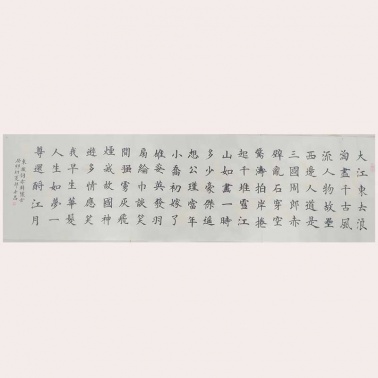 大江東去浪
淘盡千古風
流人物故壘
西邊人道是
三國周郎赤
壁亂石穿空
驚濤拍岸捲
起千堆雪江
山如畫一時
多少豪傑遙
想公瑾當年
小喬初嫁了
雄姿英發羽
扇綸巾談笑
間灰飛
煙滅故國神
遊多情應笑
我早生華髮
人生如夢一
尊還酹江月
東坡詞赤壁懷古